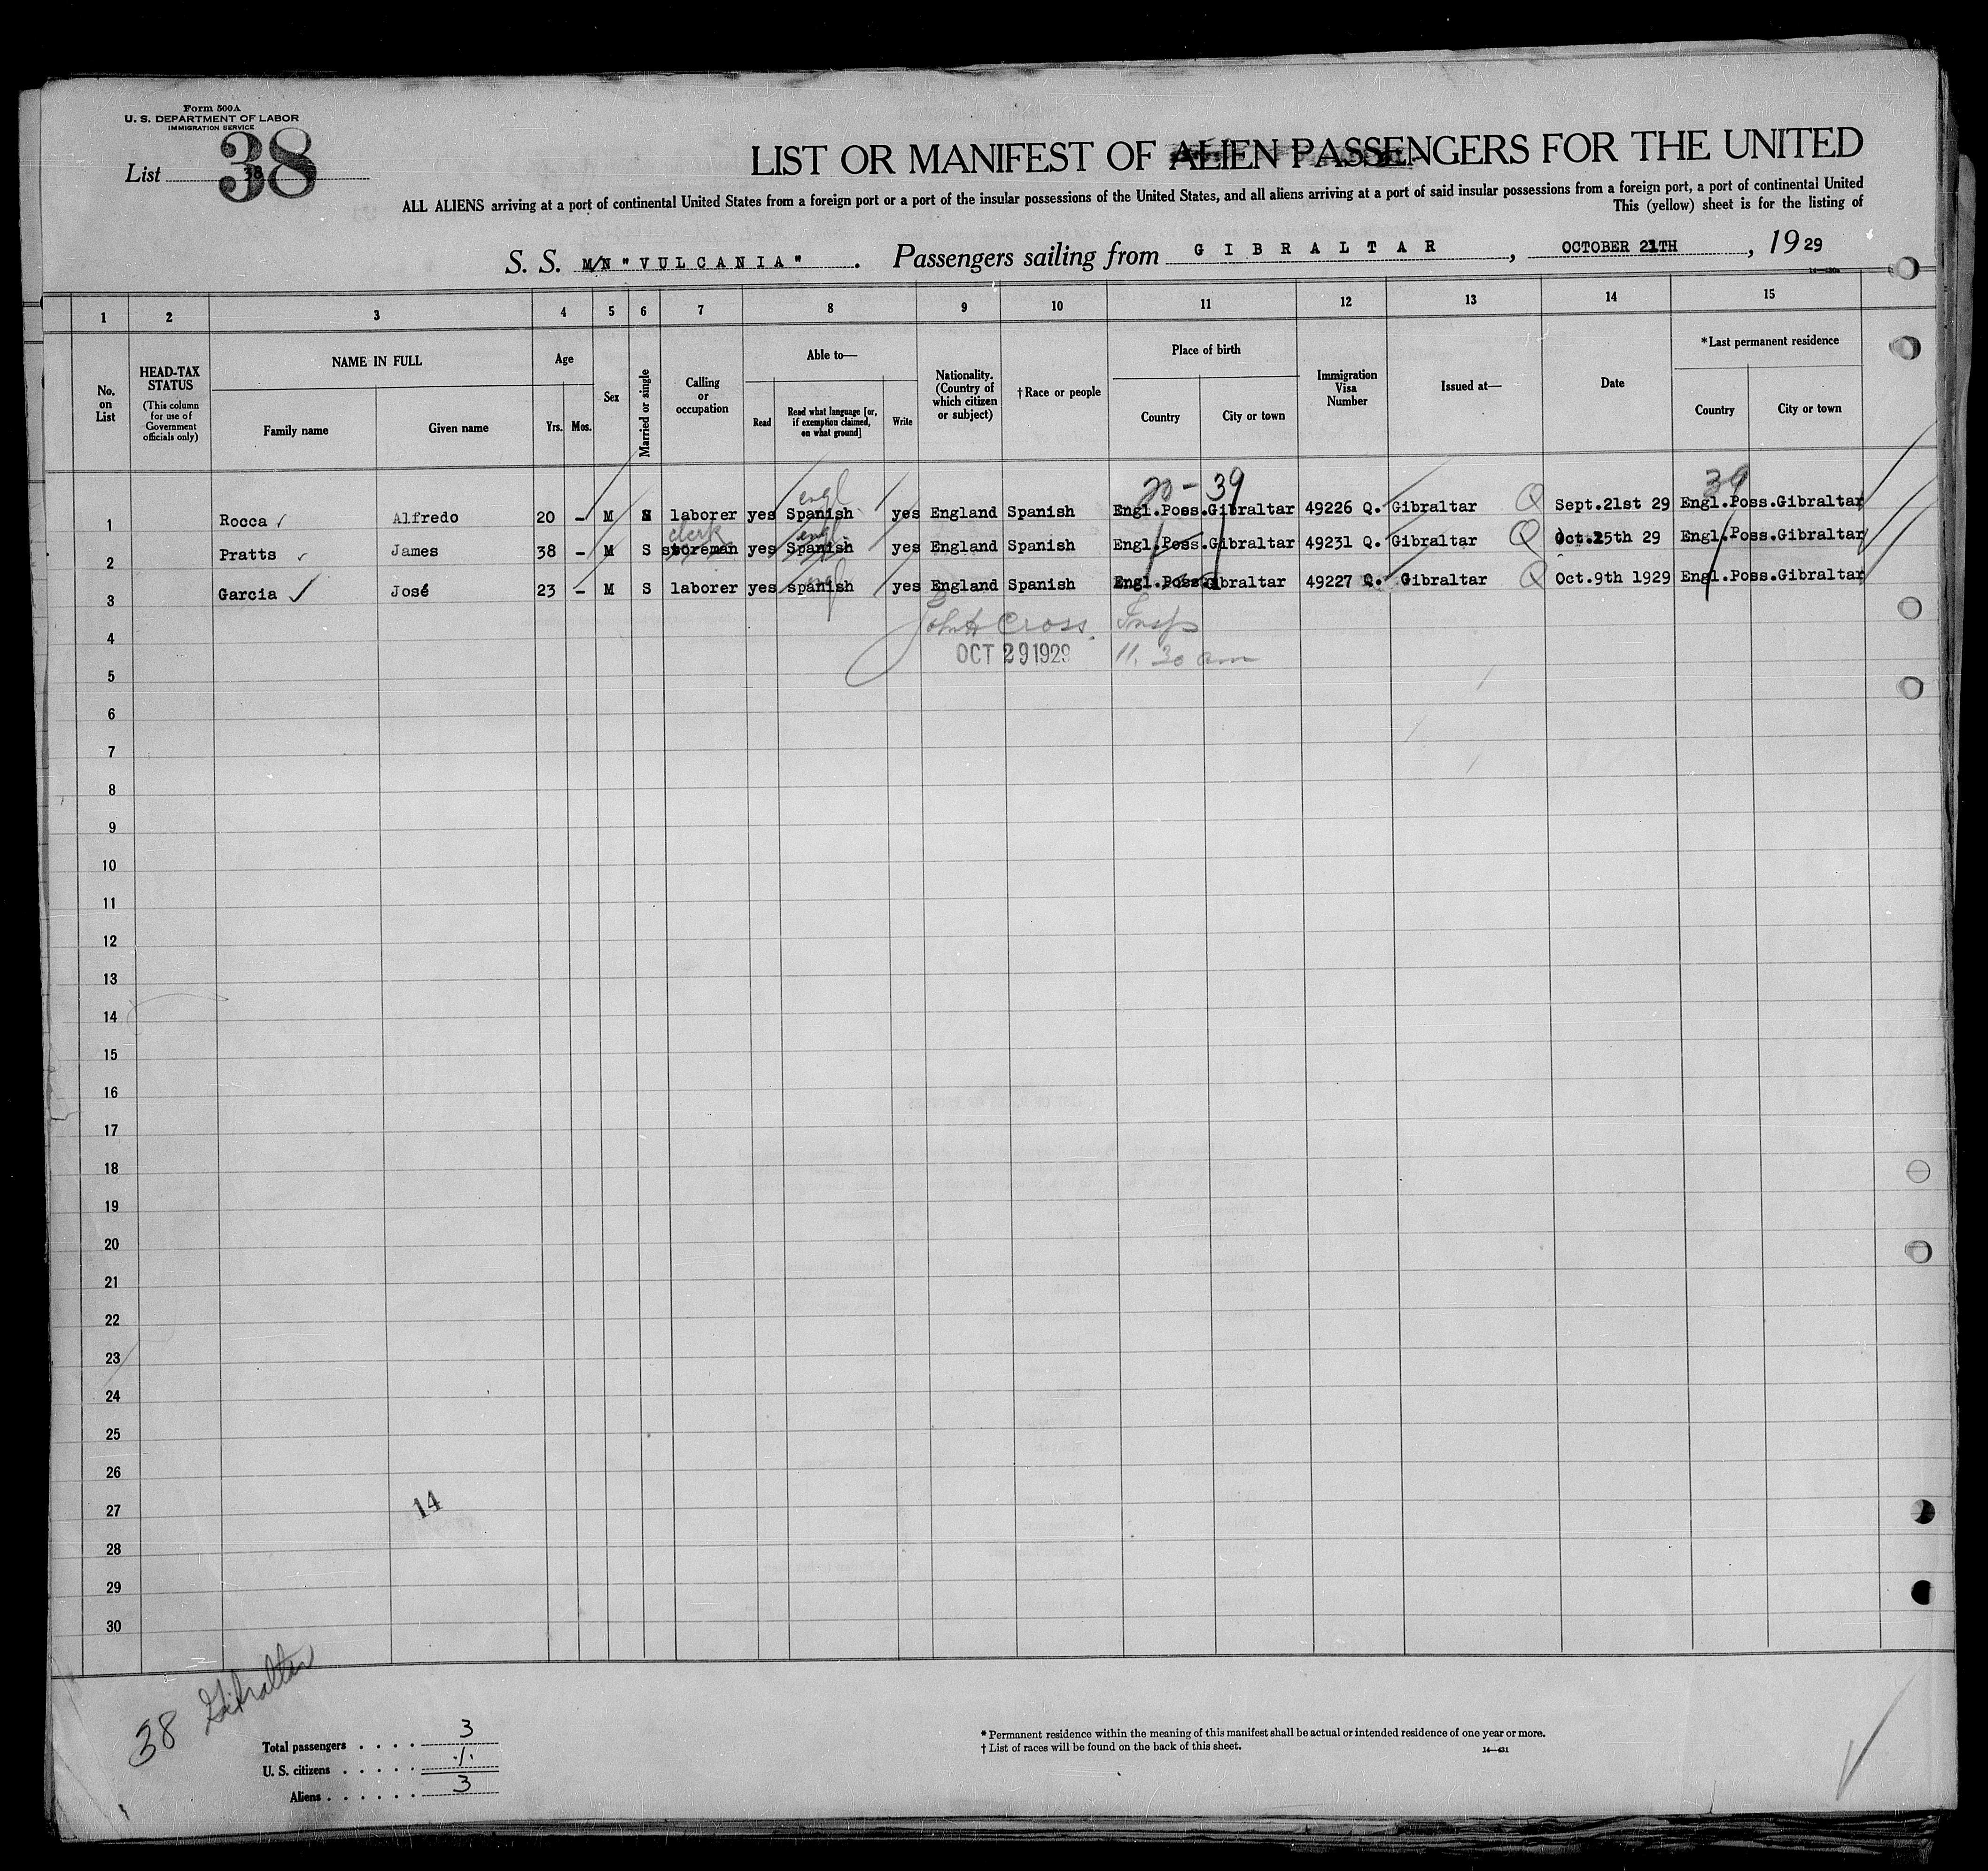 Form 500A
U. S. DEPARTMENT OF LABOR
IMMIGRATION SERVICE
List 38
38
LIST OR MANIFEST OF ALIEN PASSENGERS FOR THE UNITED
ALL ALIENS arriving at a port of continental United States from a foreign port or a port of the insular possessions of the United States, and all aliens arriving at a port of said insular possessions from a foreign port, a port of continental United
This (yellow) sheet is for the listing of
S. S. M/N "VULCANIA". Passengers sailing from GIBRALTAR, OCTOBER 21TH, 1929
14—430a
1 2 3 4 5 6 7 8 9 10 11 12 13 14 15
No. on List
HEAD-TAX STATUS
(This column for use of Government officials only)
NAME IN FULL
Family name Given name
Age
Yrs. Mos.
Sex
Married or single
Calling or occupation
Able to—
Read Read what language [or, if exemption claimed, on what ground] Write
Nationality. (Country of which citizen or subject)
†Race or people
Place of birth
Country City or town
Immigration Visa Number
Issued at—
Date
*Last permanent residence
Country City or town
engl 20 - 39 39
1 Rocca Alfredo 20 - M S laborer yes Spanish yes England Spanish Engl.Poss.Gibraltar 49226 Q. Gibraltar Q Sept.21st 29 Engl.Poss.Gibraltar
clerk engl
2 Pratts James 38 - M S storeman yes Spanish yes England Spanish Engl.Poss.Gibraltar 49231 Q. Gibraltar Q Oct.15th 29 Engl.Poss.Gibraltar
3 Garcia José 23 - M S laborer yes spanish yes England Spanish Engl.Poss.Gibraltar 49227 Q. Gibraltar Q Oct.9th 1929 Engl.Poss.Gibraltar
4 John Cross. Insp
OCT 29 1929 11.30 am
5
6
7
8
9
10
11
12
13
14
15
16
17
18
19
20
21
22
23
24
25
26
27
14
28
29
30
38 Gibraltar
Total passengers . . . . 3
U. S. citizens . . . . . ./.
Aliens . . . . . . 3
* Permanent residence within the meaning of this manifest shall be actual or intended residence of one year or more.
† List of races will be found on the back of this sheet.
14—431